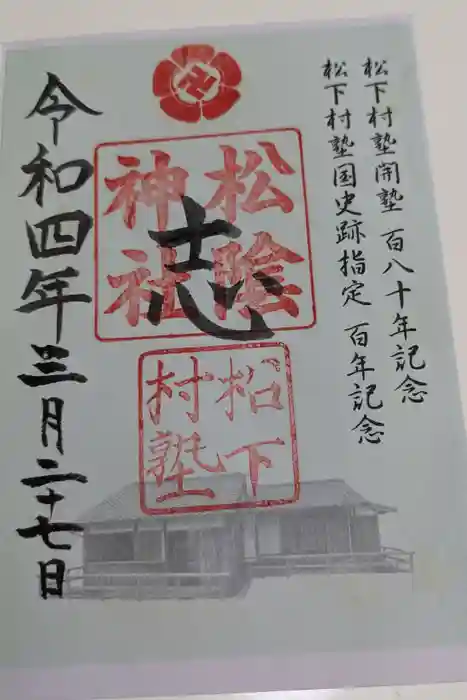 松下村塾開塾 百八十年記念
松下村塾国史跡指定 百年記念
松陰
神社
志
松下
村塾
令和四年三月二十七日